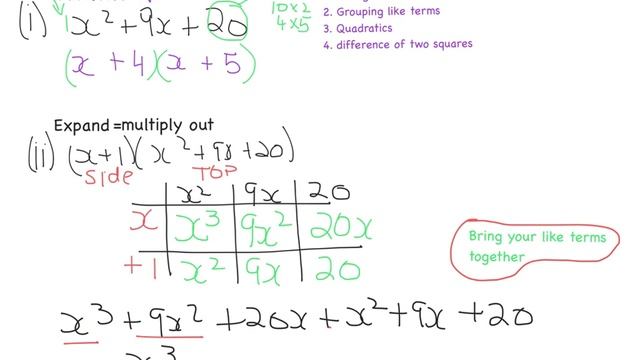 (i) 1x² + 9x + 20
10 x 2
4 x 5
(x + 4)(x + 5)
2. Grouping like terms
3. Quadratics
4. difference of two squares
Expand = multiply out
(ii) (x+1)(x² + 9x + 20)
Side TOP
x² 9x 20
x x³ 9x² 20x
+1 x² 9x 20
Bring your like terms
together
x³ + 9x² + 20x + x² + 9x + 20
x³